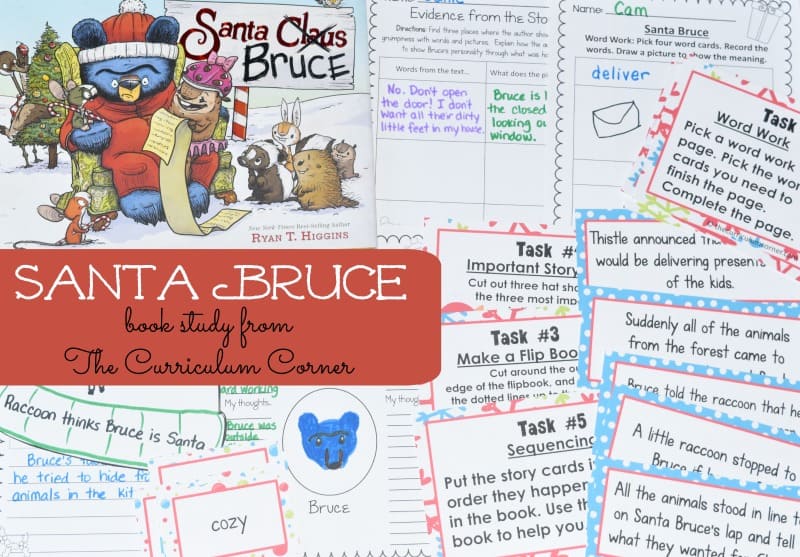 Santa Claus
BRUCE
New York Times Best-Selling Author
RYAN T. HIGGINS
SANTA BRUCE
book study from
The Curriculum Corner
Evidence from the Sto
Directions: Find three places where the author
grumpness with words and pictures. Explain how the
to show Bruce's personality through what was
Words from the text...
What does the pi
No. Don't open
the door! I don't
want all their dirty
little feet in my house.
Bruce is
the closed
looking ou
window.
Name: Cam
Santa Bruce
Word Work: Pick four word cards. Record the
words. Draw a picture to show the meaning.
deliver
Task
Word Work
Pick a word work
page. Pick the wor
cards you need to
finish the page.
Complete the page.
Task #
Important Story
Cut out three hat sha
the three most imp
Task #3
Make a Flip Boo
Cut around the ou
edge of the flipbook, and
the dotted lines up to the
Task #5
Sequencing
Put the story cards i
order they happene
in the book. Use th
book to help you.
Thistle announced
would be delivering presen
of the kids.
Suddenly all of the animals
from the forest came to
Bruce told the raccoon that he
A little raccoon stopped to
All the animals stood in line t
on Santa Bruce's lap and tell
what they wanted for
Raccoon thinks Bruce is Santa
Bruce's
he tried to hide fr
animals in the kit
rd working
My thoughts
Bruce was
outside
My thoughts
Bruce
cozy